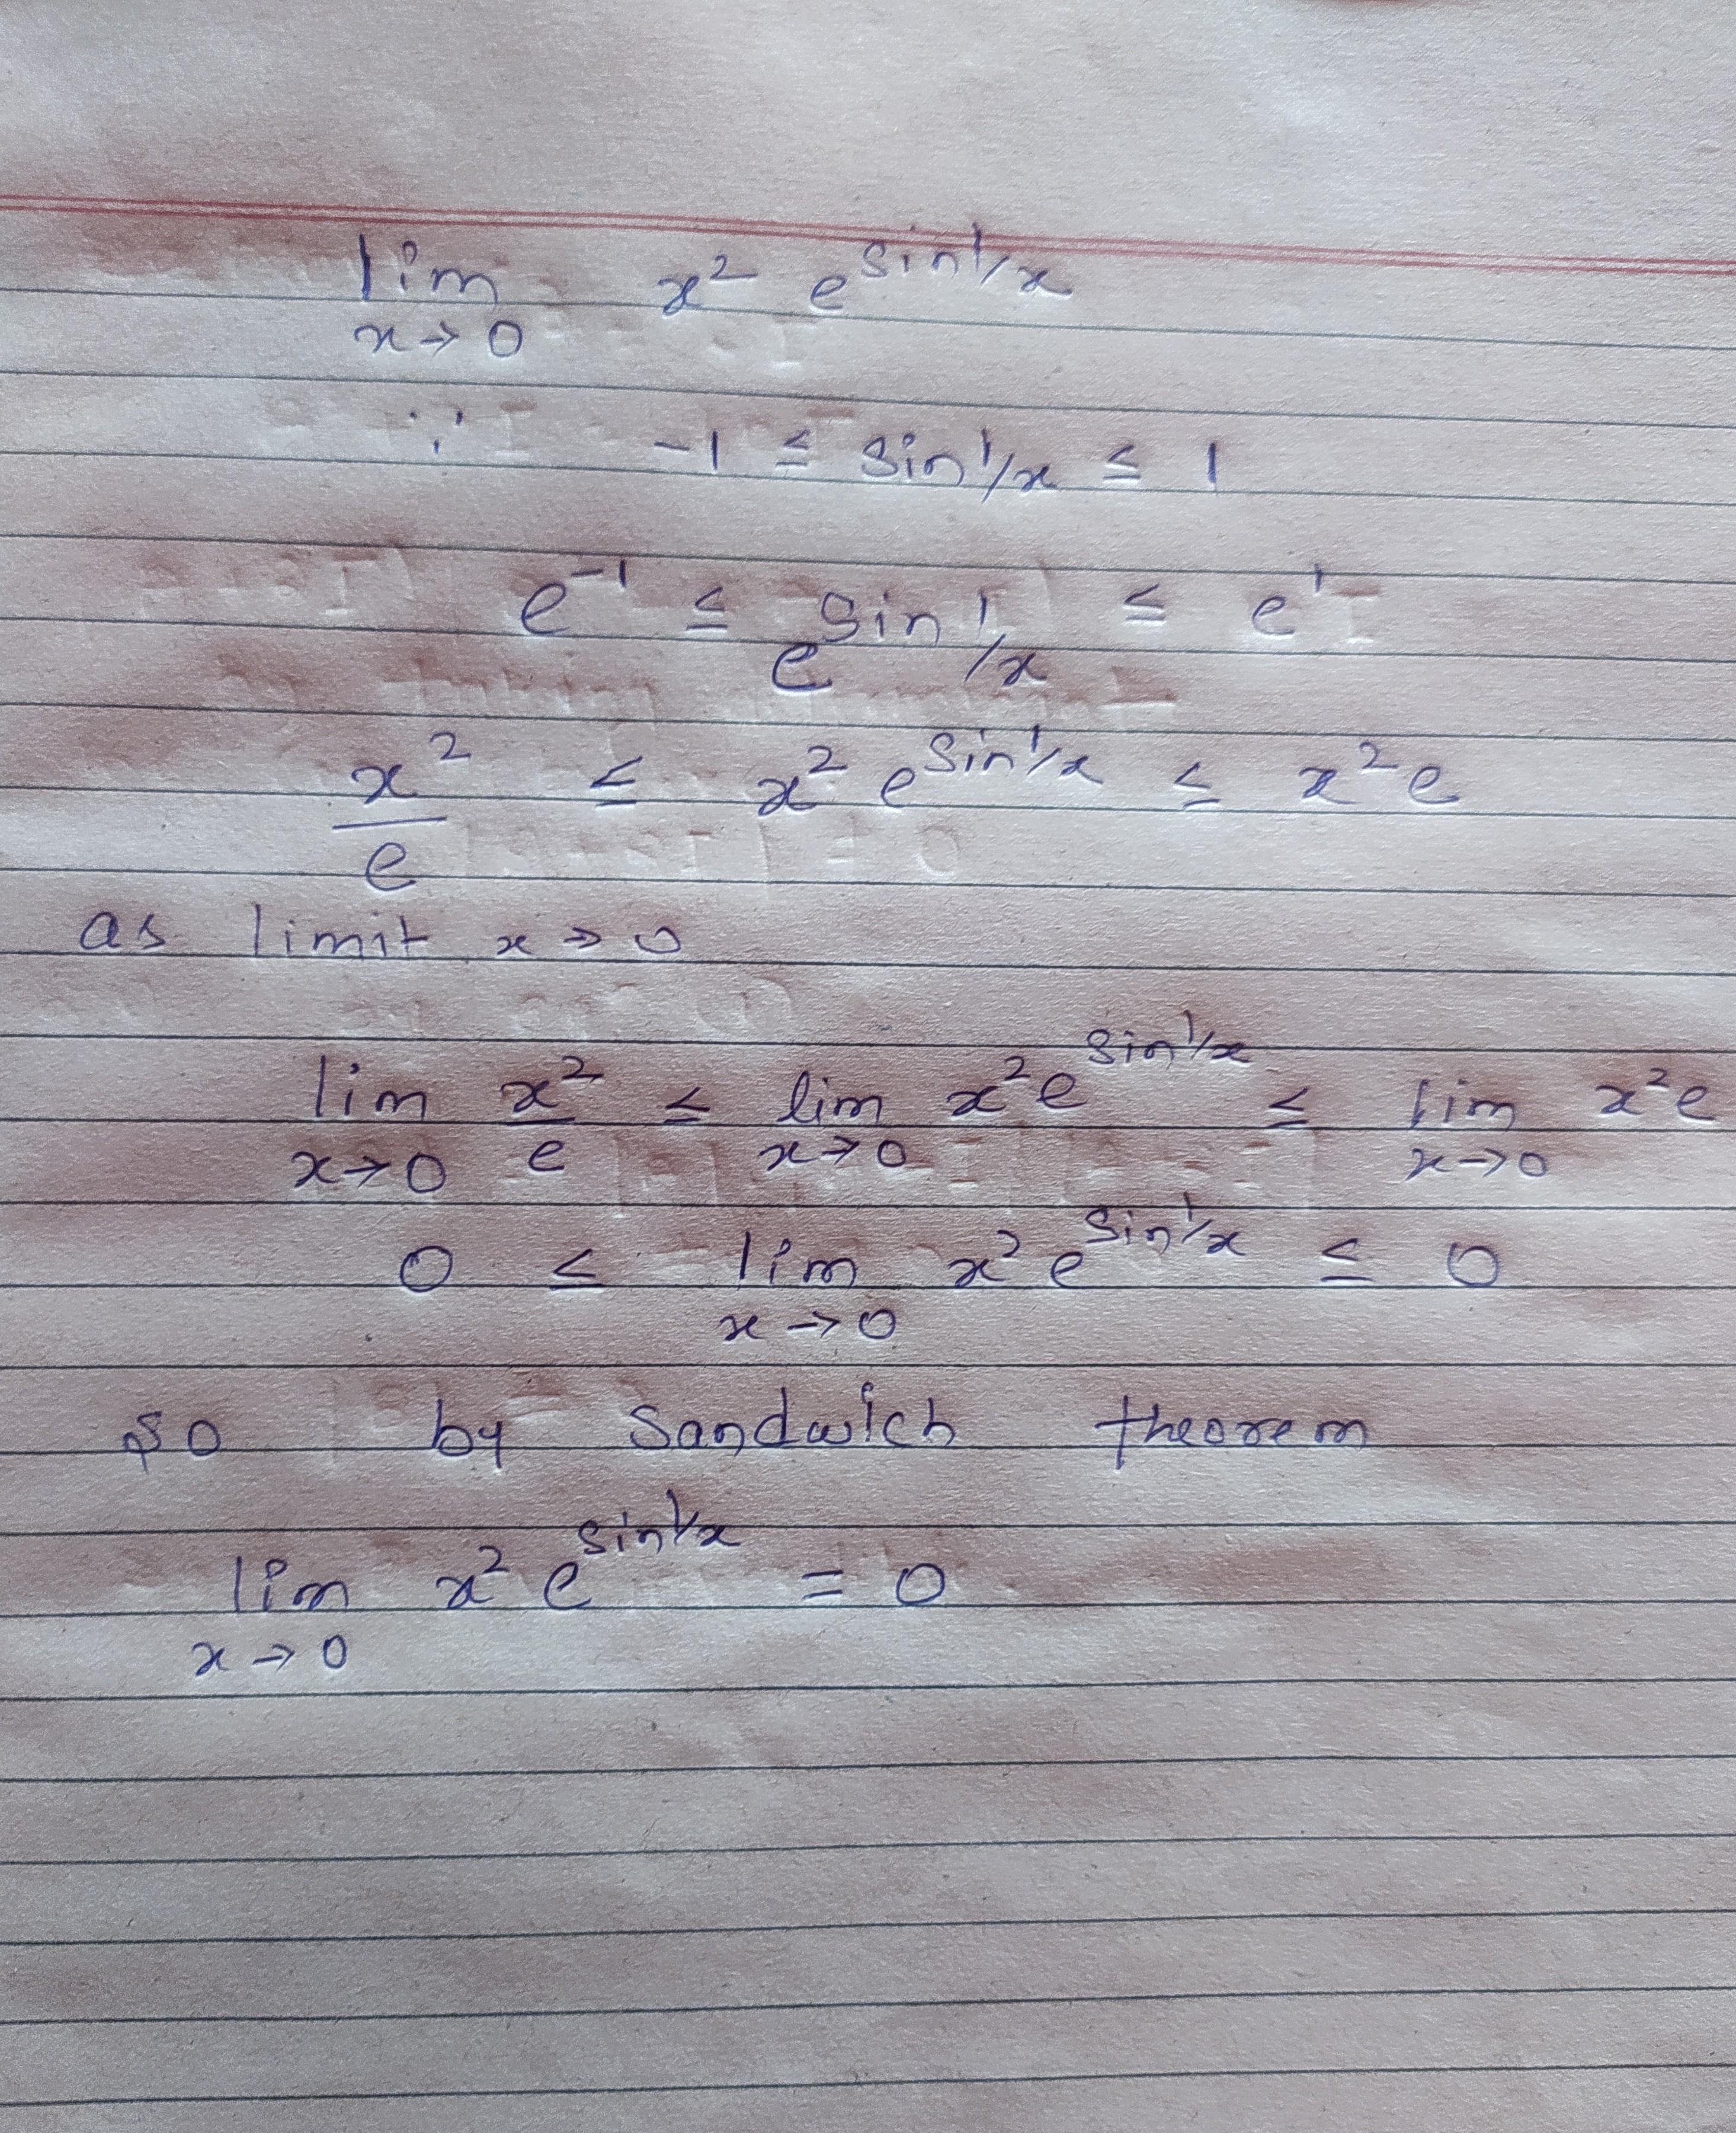 lim x→0 x² e^(sin 1/x)
∵ -1 ≤ sin 1/x ≤ 1
e⁻¹ ≤ e^(sin 1/x) ≤ e¹
x²/e ≤ x² e^(sin 1/x) ≤ x² e
as limit x→0
lim x→0 x²/e ≤ lim x→0 x² e^(sin 1/x) ≤ lim x→0 x² e
0 ≤ lim x→0 x² e^(sin 1/x) ≤ 0
so by Sandwich theorem
lim x→0 x² e^(sin 1/x) = 0